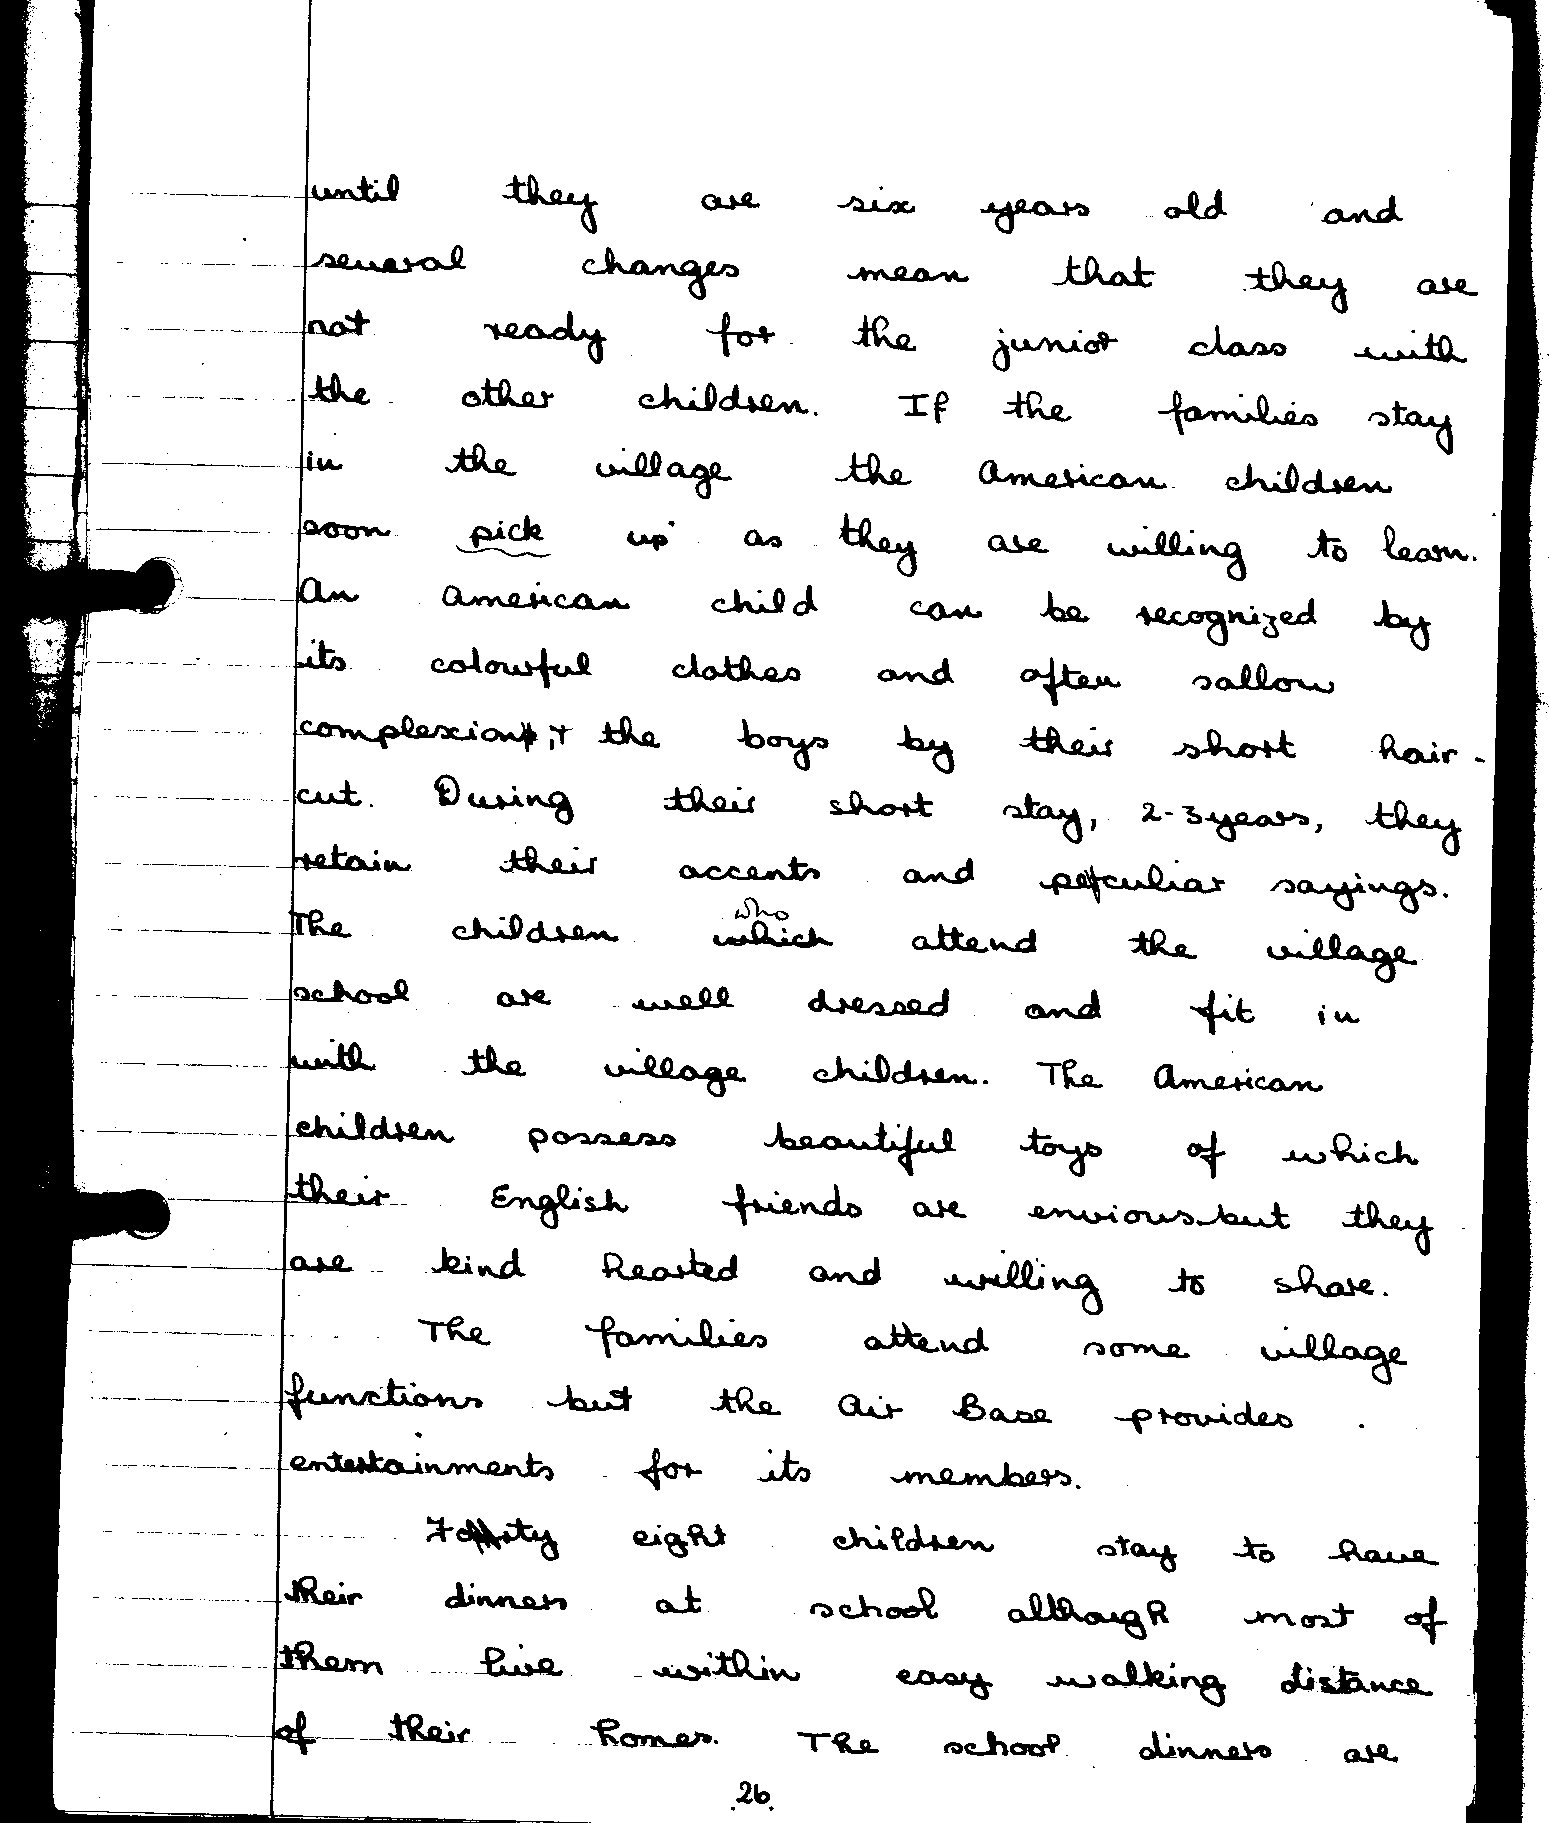 until they are six years old and
several changes mean that they are
not ready for the junior class with
the other children. If the families stay
in the village the American children
soon pick up as they are willing to learn.
An American child can be recognized by
its colourful clothes and often sallow
complexion, + the boys by their short hair-
cut. During their short stay, 2-3 years, they
retain their accents and peculiar sayings.
who
The children which attend the village
school are well dressed and fit in
with the village children. The American
children possess beautiful toys of which
their English friends are envious but they
are kind hearted and willing to share.
The families attend some village
functions but the Air Base provides
entertainments for its members.
Forty eight children stay to have
their dinners at school although most of
them live within easy walking distance
of their homes. The school dinners are
26